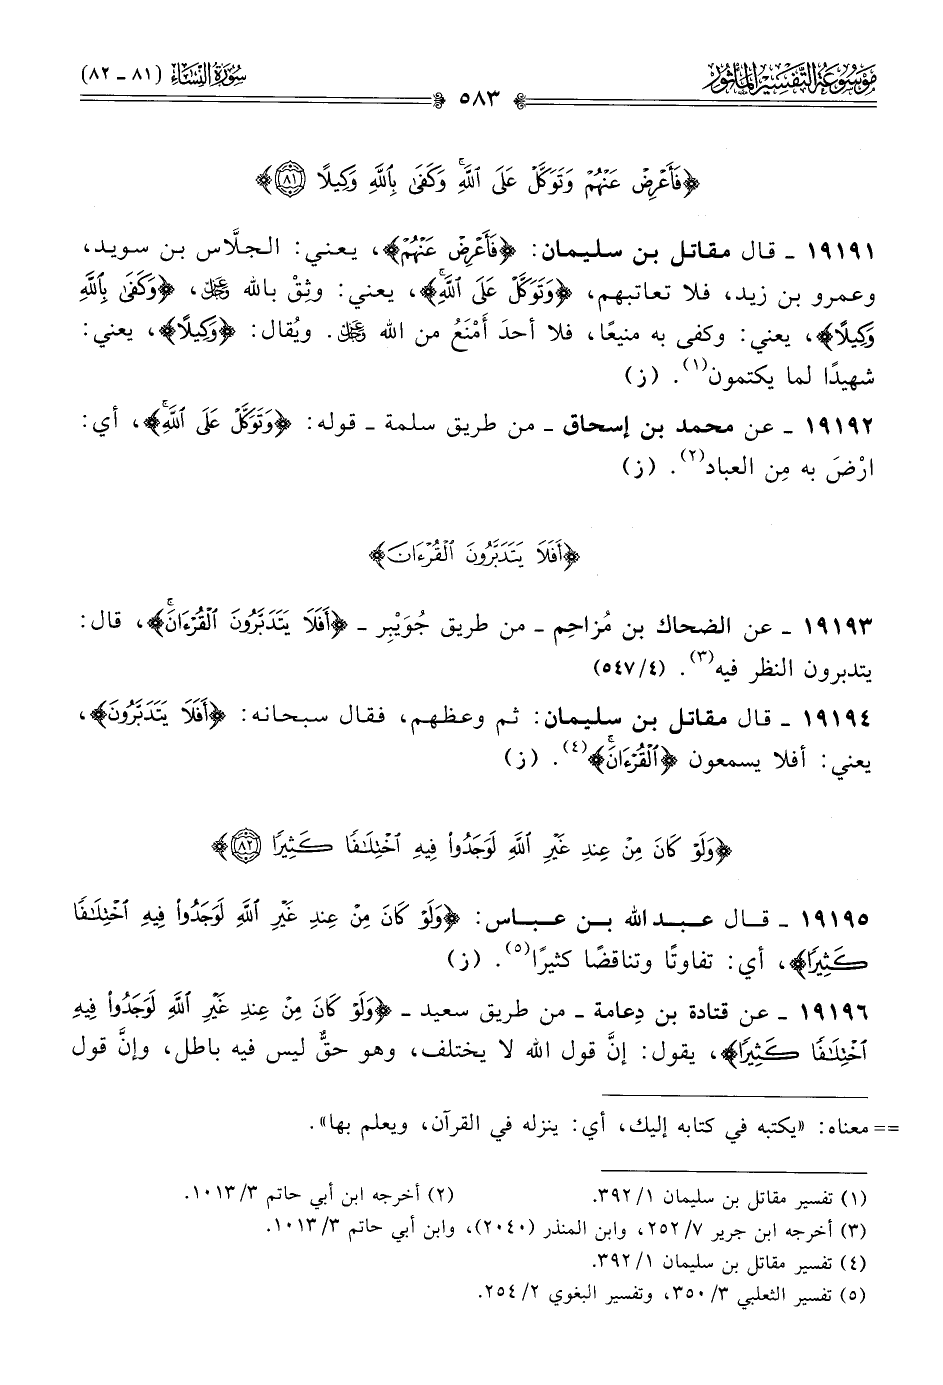 موسوعة التفسير المأثور
سورة النساء (٨١ - ٨٢)
٥٨٣
﴿فَأَعْرِضْ عَنْهُمْ وَتَوَكَّلْ عَلَى ٱللَّهِۚ وَكَفَىٰ بِٱللَّهِ وَكِيلًا ٨١﴾
١٩١٩١ - قال مقاتل بن سليمان: ﴿فَأَعْرِضْ عَنْهُمْ﴾، يعني: الجلَّاس بن سويد،
وعمرو بن زيد، فلا تعاتبهم، ﴿وَتَوَكَّلْ عَلَى ٱللَّهِۚ﴾، يعني: وثِقْ بالله ﷿، ﴿وَكَفَىٰ بِٱللَّهِ
وَكِيلًا﴾، يعني: وكفى به منيعًا، فلا أحدَ أَمْنَعُ من الله ﷿. ويُقال: ﴿وَكِيلًا﴾، يعني:
شهيدًا لما يكتمون(١). (ز)
١٩١٩٢ - عن محمد بن إسحاق - من طريق سلمة - قوله: ﴿وَتَوَكَّلْ عَلَى ٱللَّهِۚ﴾، أي:
ارْضَ به مِن العباد(٢). (ز)
﴿أَفَلَا يَتَدَبَّرُونَ ٱلْقُرْءَانَ﴾
١٩١٩٣ - عن الضحاك بن مُزاحِم - من طريق جُوَيْبِر - ﴿أَفَلَا يَتَدَبَّرُونَ ٱلْقُرْءَانَۚ﴾، قال:
يتدبرون النظر فيه(٣). (٥٤٧/٤)
١٩١٩٤ - قال مقاتل بن سليمان: ثم وعظهم، فقال سبحانه: ﴿أَفَلَا يَتَدَبَّرُونَ﴾،
يعني: أفلا يسمعون ﴿ٱلْقُرْءَانَۚ﴾(٤). (ز)
﴿وَلَوْ كَانَ مِنْ عِندِ غَيْرِ ٱللَّهِ لَوَجَدُوا۟ فِيهِ ٱخْتِلَٰفًا كَثِيرًا ٨٢﴾
١٩١٩٥ - قال عبد الله بن عباس: ﴿وَلَوْ كَانَ مِنْ عِندِ غَيْرِ ٱللَّهِ لَوَجَدُوا۟ فِيهِ ٱخْتِلَٰفًا
كَثِيرًا﴾، أي: تفاوتًا وتناقضًا كثيرًا(٥). (ز)
١٩١٩٦ - عن قتادة بن دِعامة - من طريق سعيد - ﴿وَلَوْ كَانَ مِنْ عِندِ غَيْرِ ٱللَّهِ لَوَجَدُوا۟ فِيهِ
ٱخْتِلَٰفًا كَثِيرًا﴾، يقول: إنَّ قول الله لا يختلف، وهو حقٌّ ليس فيه باطل، وإنَّ قول
== معناه: «يكتبه في كتابه إليك، أي: ينزله في القرآن، ويعلم بها».
(١) تفسير مقاتل بن سليمان ١/ ٣٩٢. (٢) أخرجه ابن أبي حاتم ٣/ ١٠١٣.
(٣) أخرجه ابن جرير ٧/ ٢٥٢، وابن المنذر (٢٠٤٠)، وابن أبي حاتم ٣/ ١٠١٣.
(٤) تفسير مقاتل بن سليمان ١/ ٣٩٢.
(٥) تفسير الثعلبي ٣/ ٣٥٠، وتفسير البغوي ٢/ ٢٥٤.